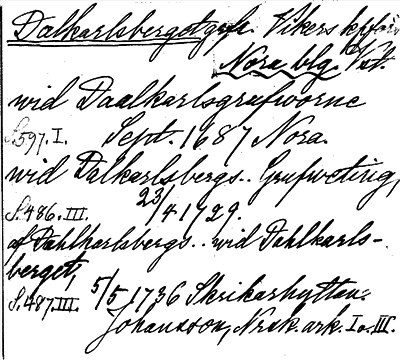 Dalkarlsberget gfr. Vikers kpförs.
Nora blg. Vst.
wid Daalkarlsgrufworne
S.597.I. Sept. 1687 Nora.
wid Dalkarlsbergs.. Grufweting,
S.486.III. 23/4 1729.
af Dahlkarlsbergs.. wid Dahlkarls-
berget,
S.487.III. 5/5 1736 Skrikarhyttan:
Johansson, Nrsk. ark. I o. III.